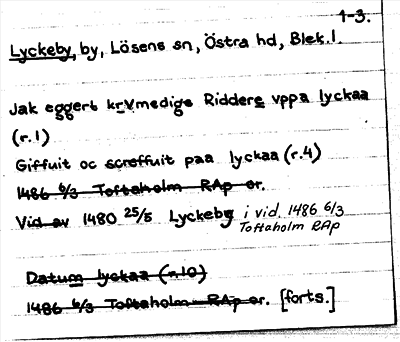 1-3.
Lyckeby, by, Lösens sn, Östra hd, Blek.l.
Jak eggert krvmedige Riddere vppa lyckaa
(r.1)
Giffuit oc screffuit paa lyckaa (r.4)
1486 6/3 Toftaholm RAp or.
Vid av 1480 25/5 Lyckeby i vid. 1486 6/3
Toftaholm RAp
Datum lyckaa (r.10)
1486 6/3 Toftaholm RAp or. [forts.]